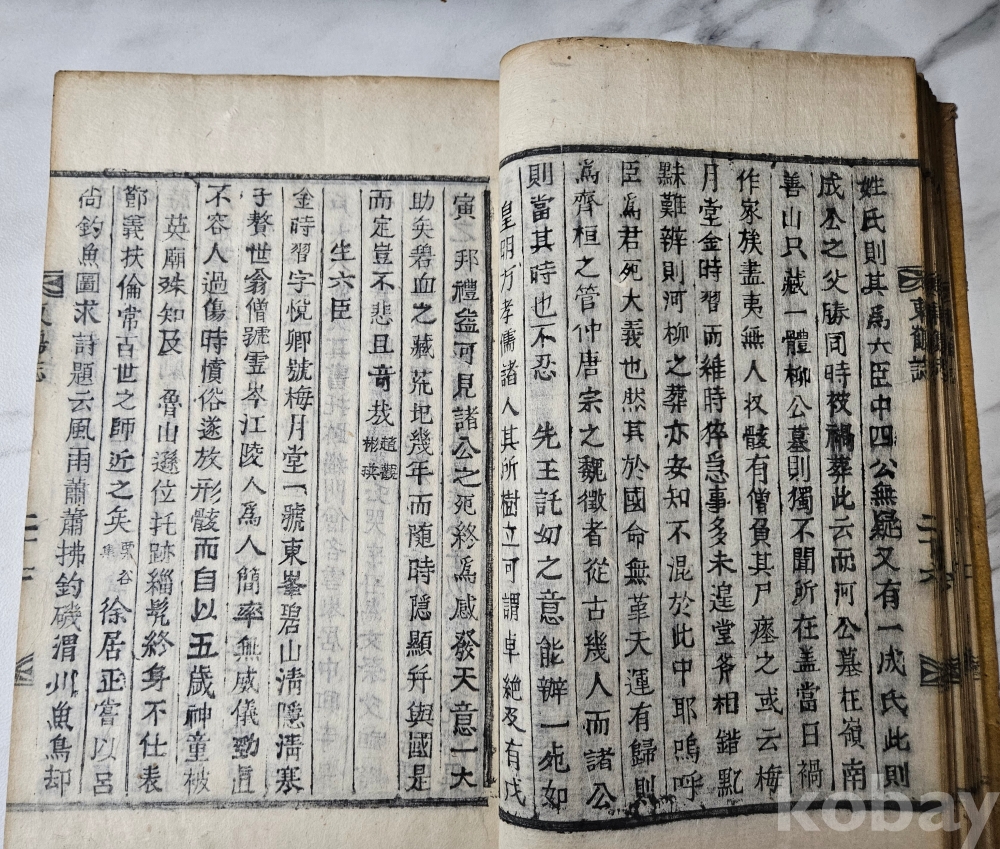 姓氏則其爲六臣中四公無疑又有一成氏此則
成公之父勝同時被禍葬此云而河公墓在嶺南
善山只藏一體柳公墓則獨不聞所在盖當日禍
作家族盡夷無人收骸有僧負其尸瘞之或云梅
月堂金時習而維時猝急事多未遑堂斧相錯䵝
黜難辨則河柳之葬亦安知不混於此中耶嗚呼
臣爲君死大義也然其於國命無革天運有歸則
爲齊桓之管仲唐宗之魏徵者從古幾人而諸公
則當其時也不忍 先王託幼之意能辦一死如
皇明方孝儒諸人其所樹立可謂卓絶及有戊
寅之邦禮益可見諸公之死終爲感發天意一大
助矣碧血之藏荒圯幾年而随時隱顯幷與國是
而定豈不悲且奇哉 趙觀彬璞
生六臣
金時習字悅卿號梅月堂一號東峯碧山淸隱淸寒
子贅世翁僧號雪岑江陵人爲人簡率無威儀勁直
不容人過傷時憤俗遂放形骸而自以五歲神童被
英廟殊知及 魯山遜位托跡緇髡終身不仕表
節義扶倫常百世之師近之矣 栗谷集 徐居正嘗以呂
尙釣魚圖求詩題云風雨蕭蕭拂釣磯渭川魚鳥却
東鶴誌
二十六
kobay